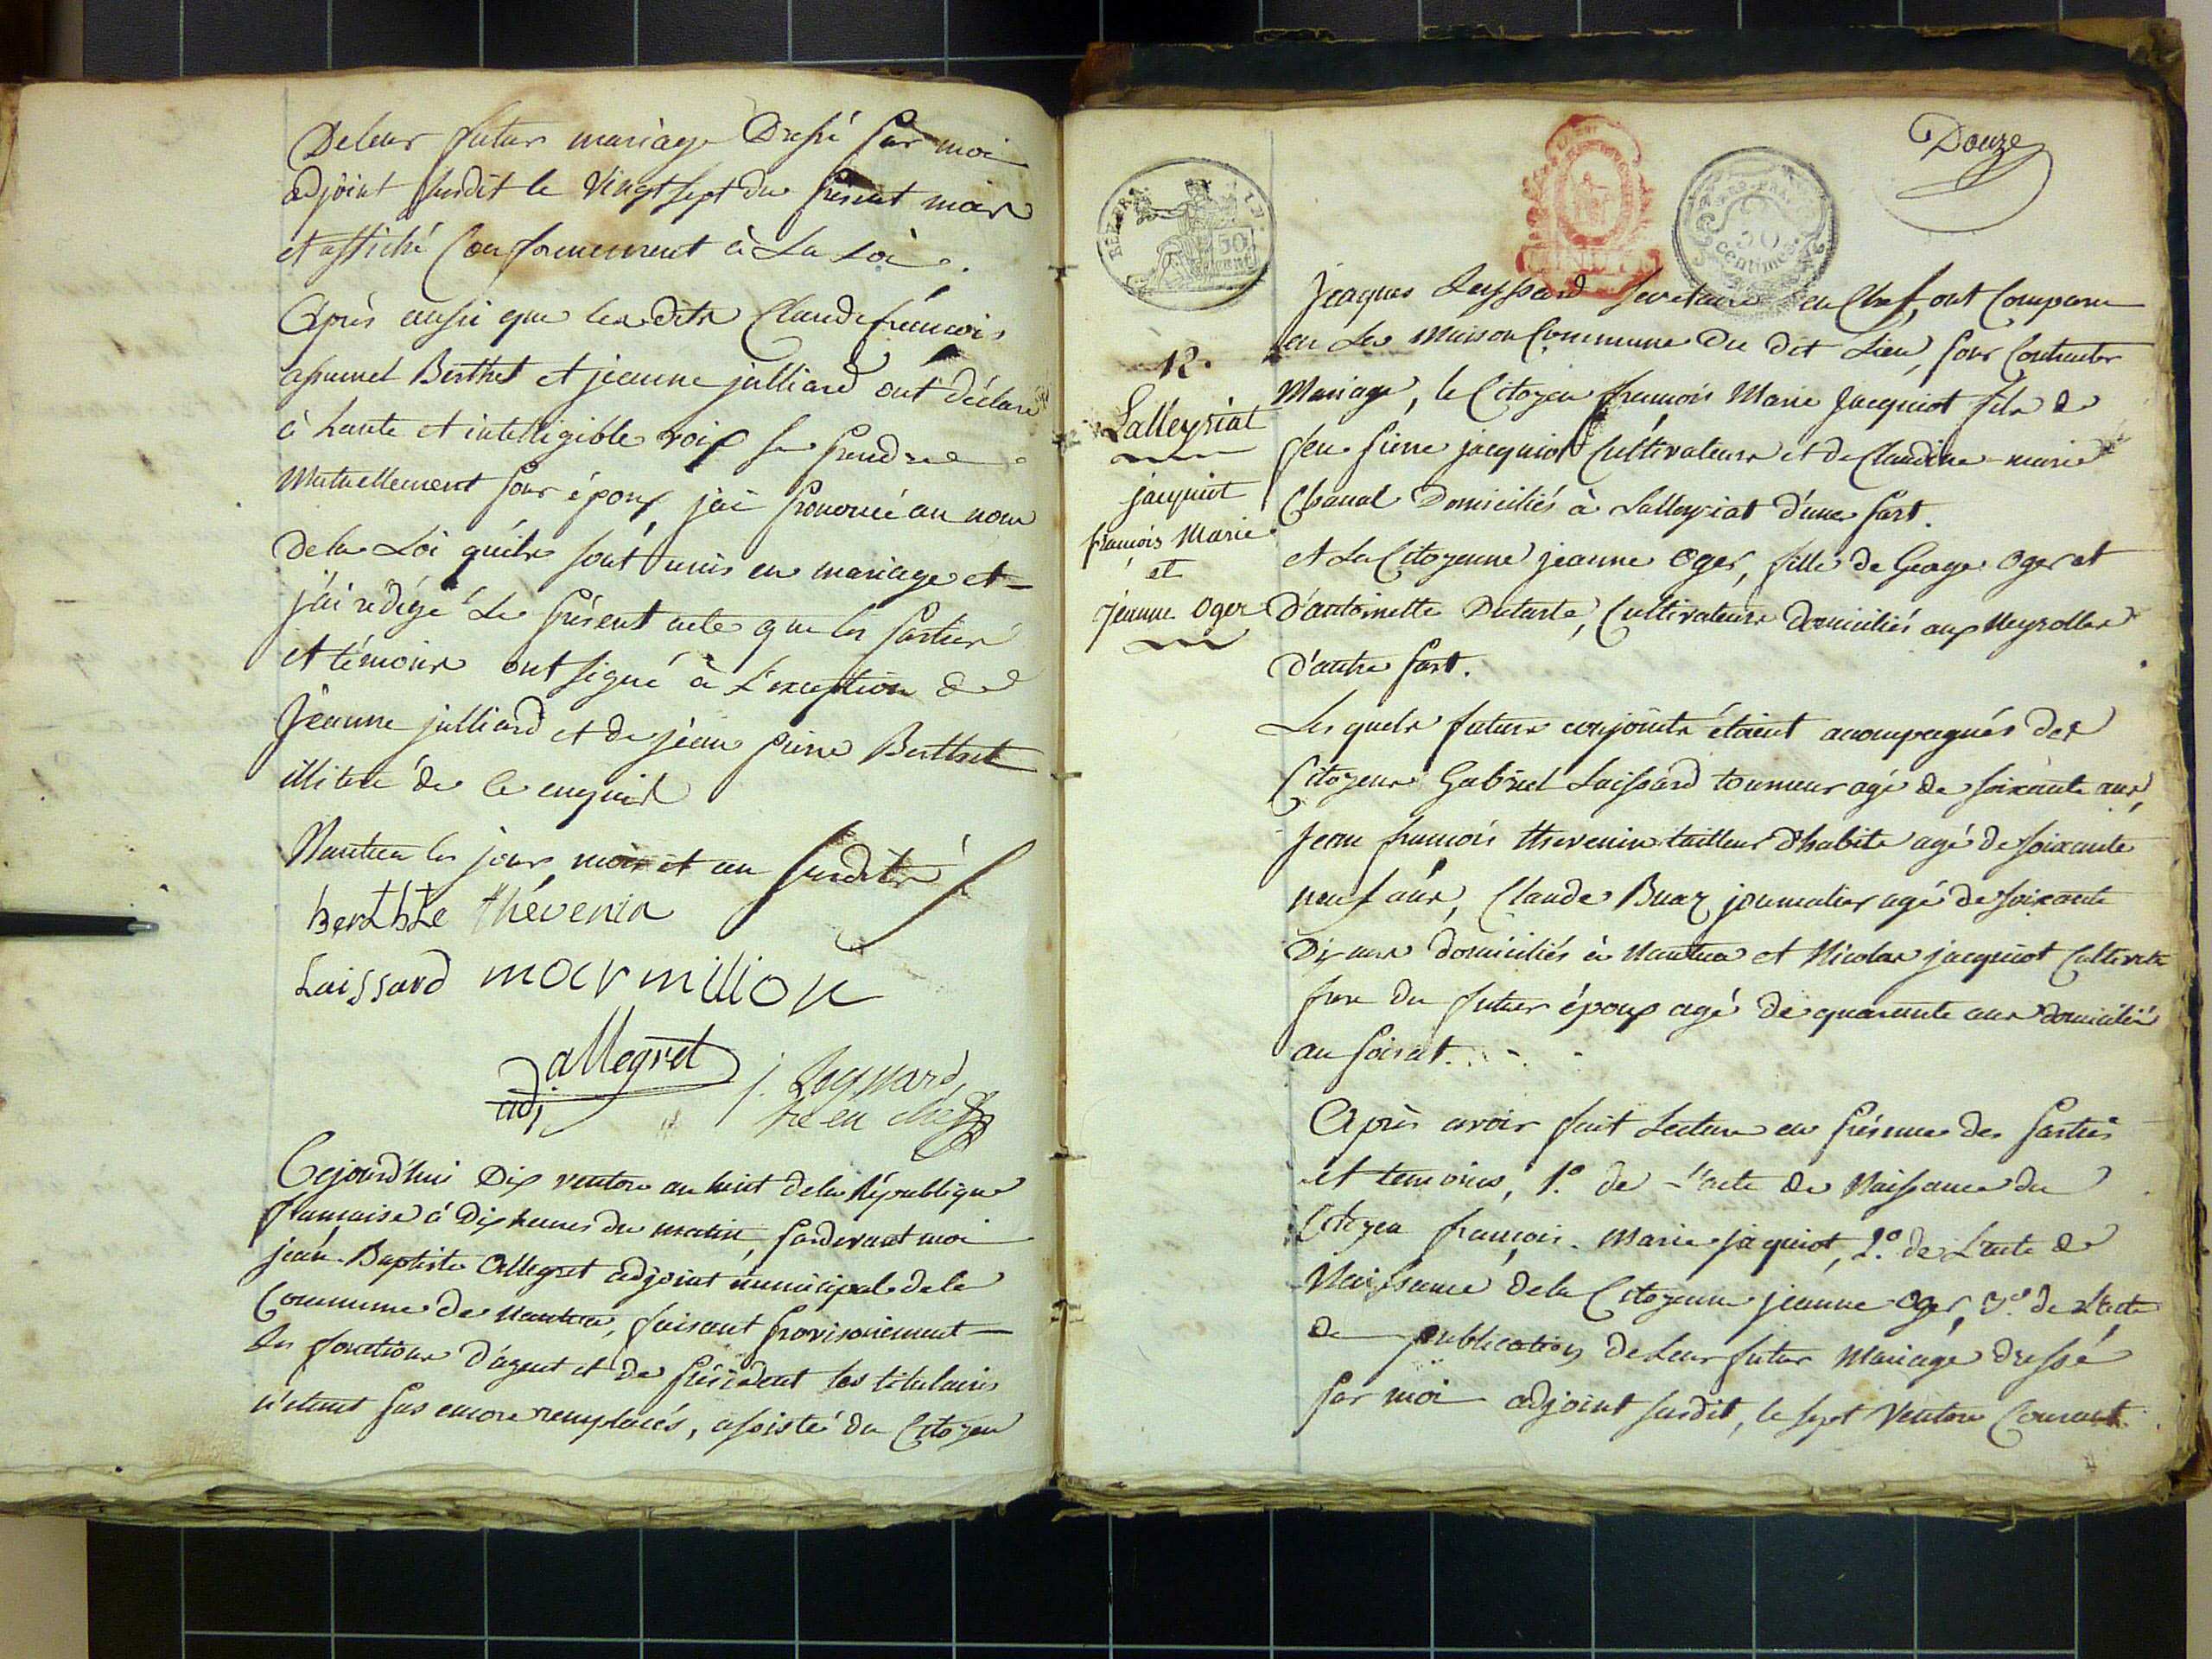 De leur futur mariage Dressé par moi
adjoint susdit le Vingt sept du present mois
et affiché Conformement à La Loi.
Après aussi que les dits Claude françois
Berthet et jeanne julliard ont déclaré
à haute et intelligible voix se prendre
Mutuellement pour époux, jai prononcé au nom
de la Loi quils sont unis en mariage et
j'ai rédigé Le présent acte que les parties
et témoins ont signé à L'exception de
Jeanne julliard et de jean pierre Berthet
illitéré de ce enquis
Nantua les jour, mois et an susdits
berthte thévenin
Laissard marmillion
allegret
adj
j. Leyssard
sre en chef
Cejourd'hui Dix ventose an huit dela République
française à Dix heures du matin, pardevant moi
jean-Baptiste Allegret adjoint municipal dela
Commune de Nantua, faisant provisoirement
les fonctions d'agent et de président les titulaires
n'etant pas encore remplacés, assisté du Citoyen
Douze
REP. FRA.
50
cent
30
centimes
Jeaques Leyssard Secretaire en Chef, ont Comparu
en La Maison Commune du dit Lieu, pour Contracter
Mariage, le Citoyen francois Marie Jacquiot fils de
feu pierre jacquiot Cultivateurs et de Claudine-marie
Chanal Domiciliés à Lalleyriat d'une part.
et La Citoyenne jeanne Oger, fille de George Oger et
D'antoinette Dutarte, Cultivateurs domiciliés aux Neyrolles
D'autre part.
12.
Lalleyriat
jacquiot
françois Marie
et
jeanne Oger
Lesquels futurs conjoints étaient acompagnés des
Citoyens Gabriel Laissard tourneur agé de soixante ans,
Jean francois thevenin tailleur d'habits agé de soixante
neuf ans, Claude Buaz journalier agé de soixante
Dix ans domiciliés à Nantua et Nicolas jacquiot Cultivatr
frere du futur époux agé de quarante ans domicilié
au poisat.
Après avoir fait Lecture en présence des parties
et temoins, 1.o de l'acte de Naissance du
Citoyen françois-Marie jaquiot, 2.o de L'acte de
Naissance dela Citoyenne jeanne Oger, 3.o de L'acte
de publication de Leur futur Mariage dressé
par moi adjoint susdit, le sept Ventose Courant